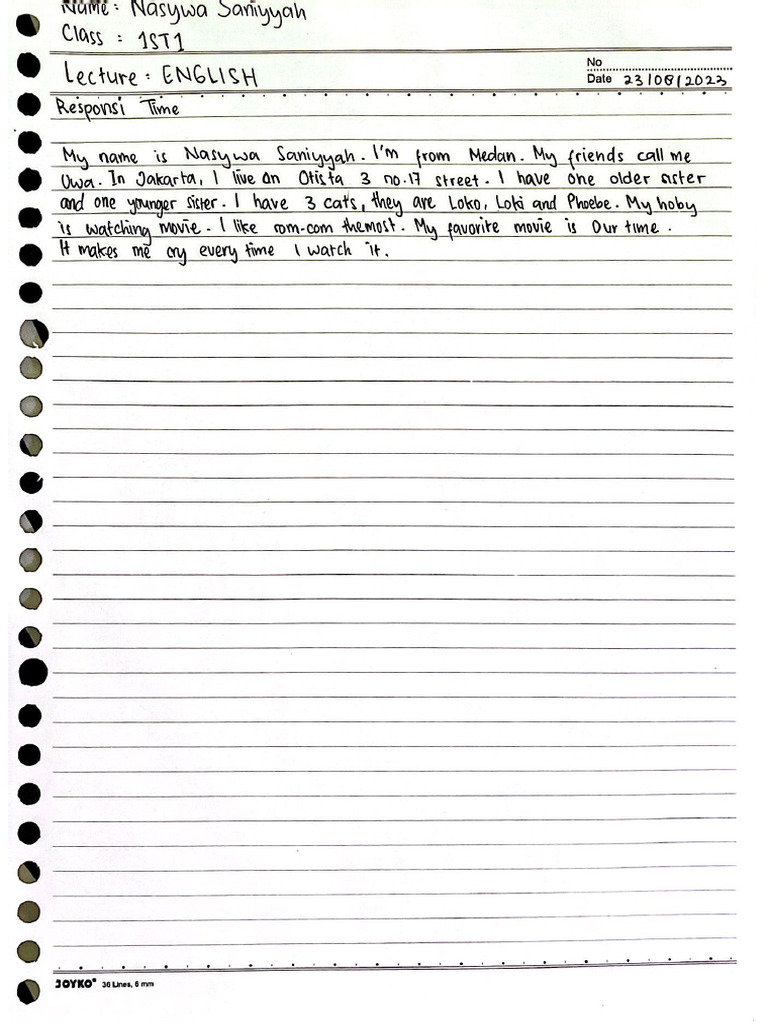 Name : Nasywa Saniyyah
Class : 1ST1
Lecture : ENGLISH
No
Date 23/08/2023
Responsi Time
My name is Nasywa Saniyyah. I'm from Medan. My friends call me
Uwa. In Jakarta, I live on Otista 3 no.17 street. I have one older sister
and one younger sister. I have 3 cats, they are Loko, Loki and Phoebe. My hoby
is watching movie. I like rom-com themost. My favorite movie is Our time.
It makes me cry every time I watch it.
JOYKO® 36 Lines, 6 mm